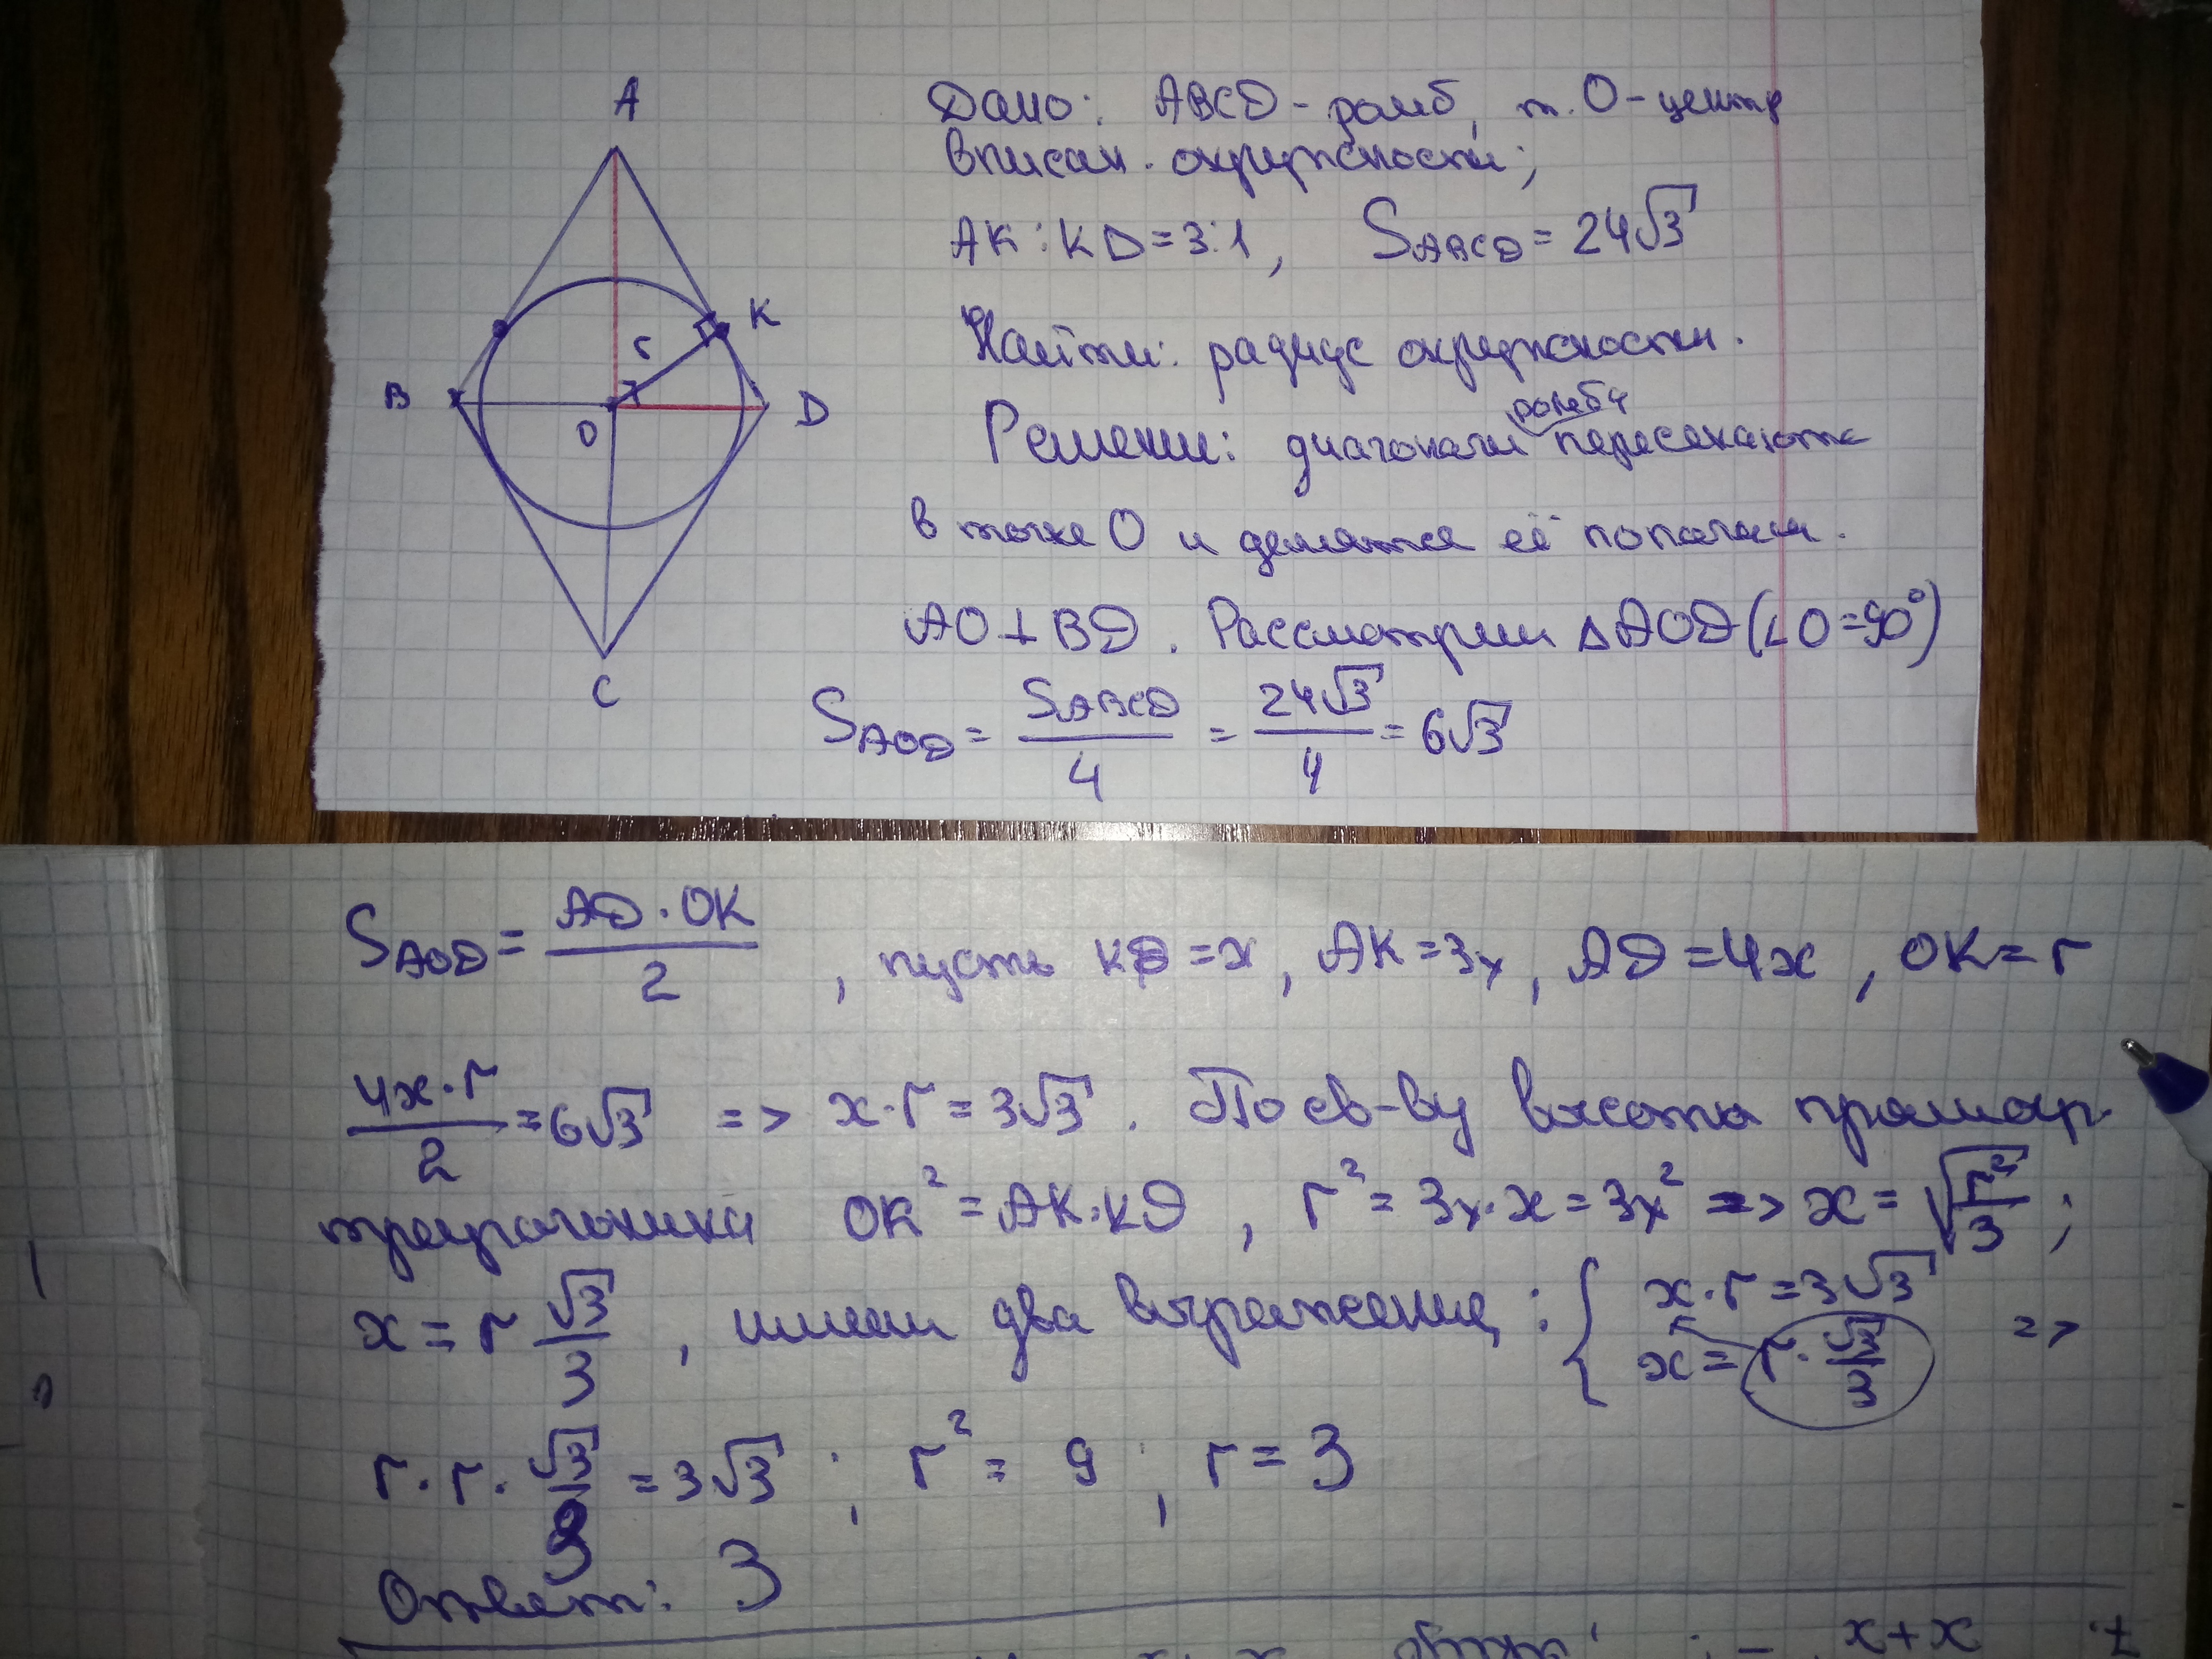 A
B
O
r
K
D
C
Дано: ABCD - ромб, т. O - центр
вписан. окружности;
AK : KD = 3:1, S_ABCD = 24√3
Найти: радиус окружности.
Решение: диагонали ромба пересекаются
в точке O и делятся её пополам.
AO ⊥ BD. Рассмотрим △AOD (∠O = 90°)
S_AOD = S_ABCD / 4 = 24√3 / 4 = 6√3
S_AOD = AD · OK / 2, пусть KD = x, AK = 3x, AD = 4x, OK = r
4x · r / 2 = 6√3 => x · r = 3√3. По св-ву высоты прямоуг.
треугольника OK² = AK · KD, r² = 3x · x = 3x² => x = √(r²/3);
x = r √3/3, имеем два выражения: { x · r = 3√3
x = r · √3/3 =>
r · r · √3/3 = 3√3; r² = 9; r = 3
Ответ: 3
x+x